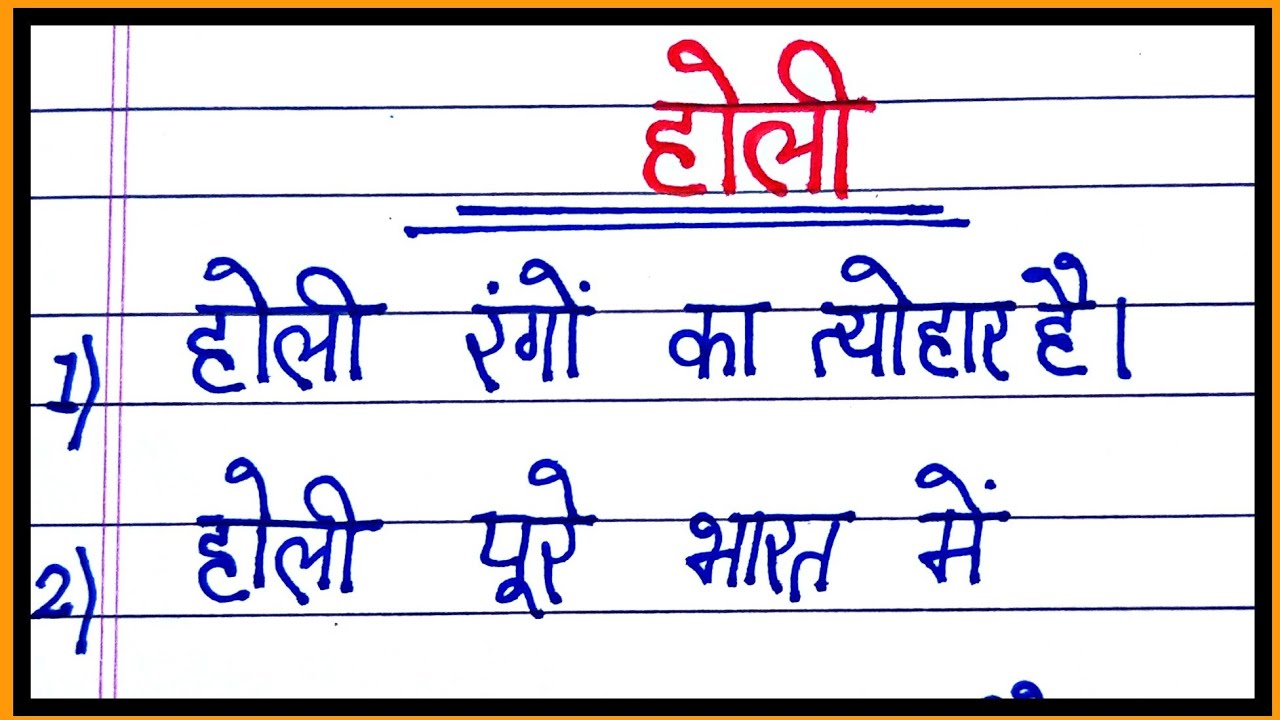 होली
1) होली रंगों का त्योहार है।
2) होली पूरे भारत में